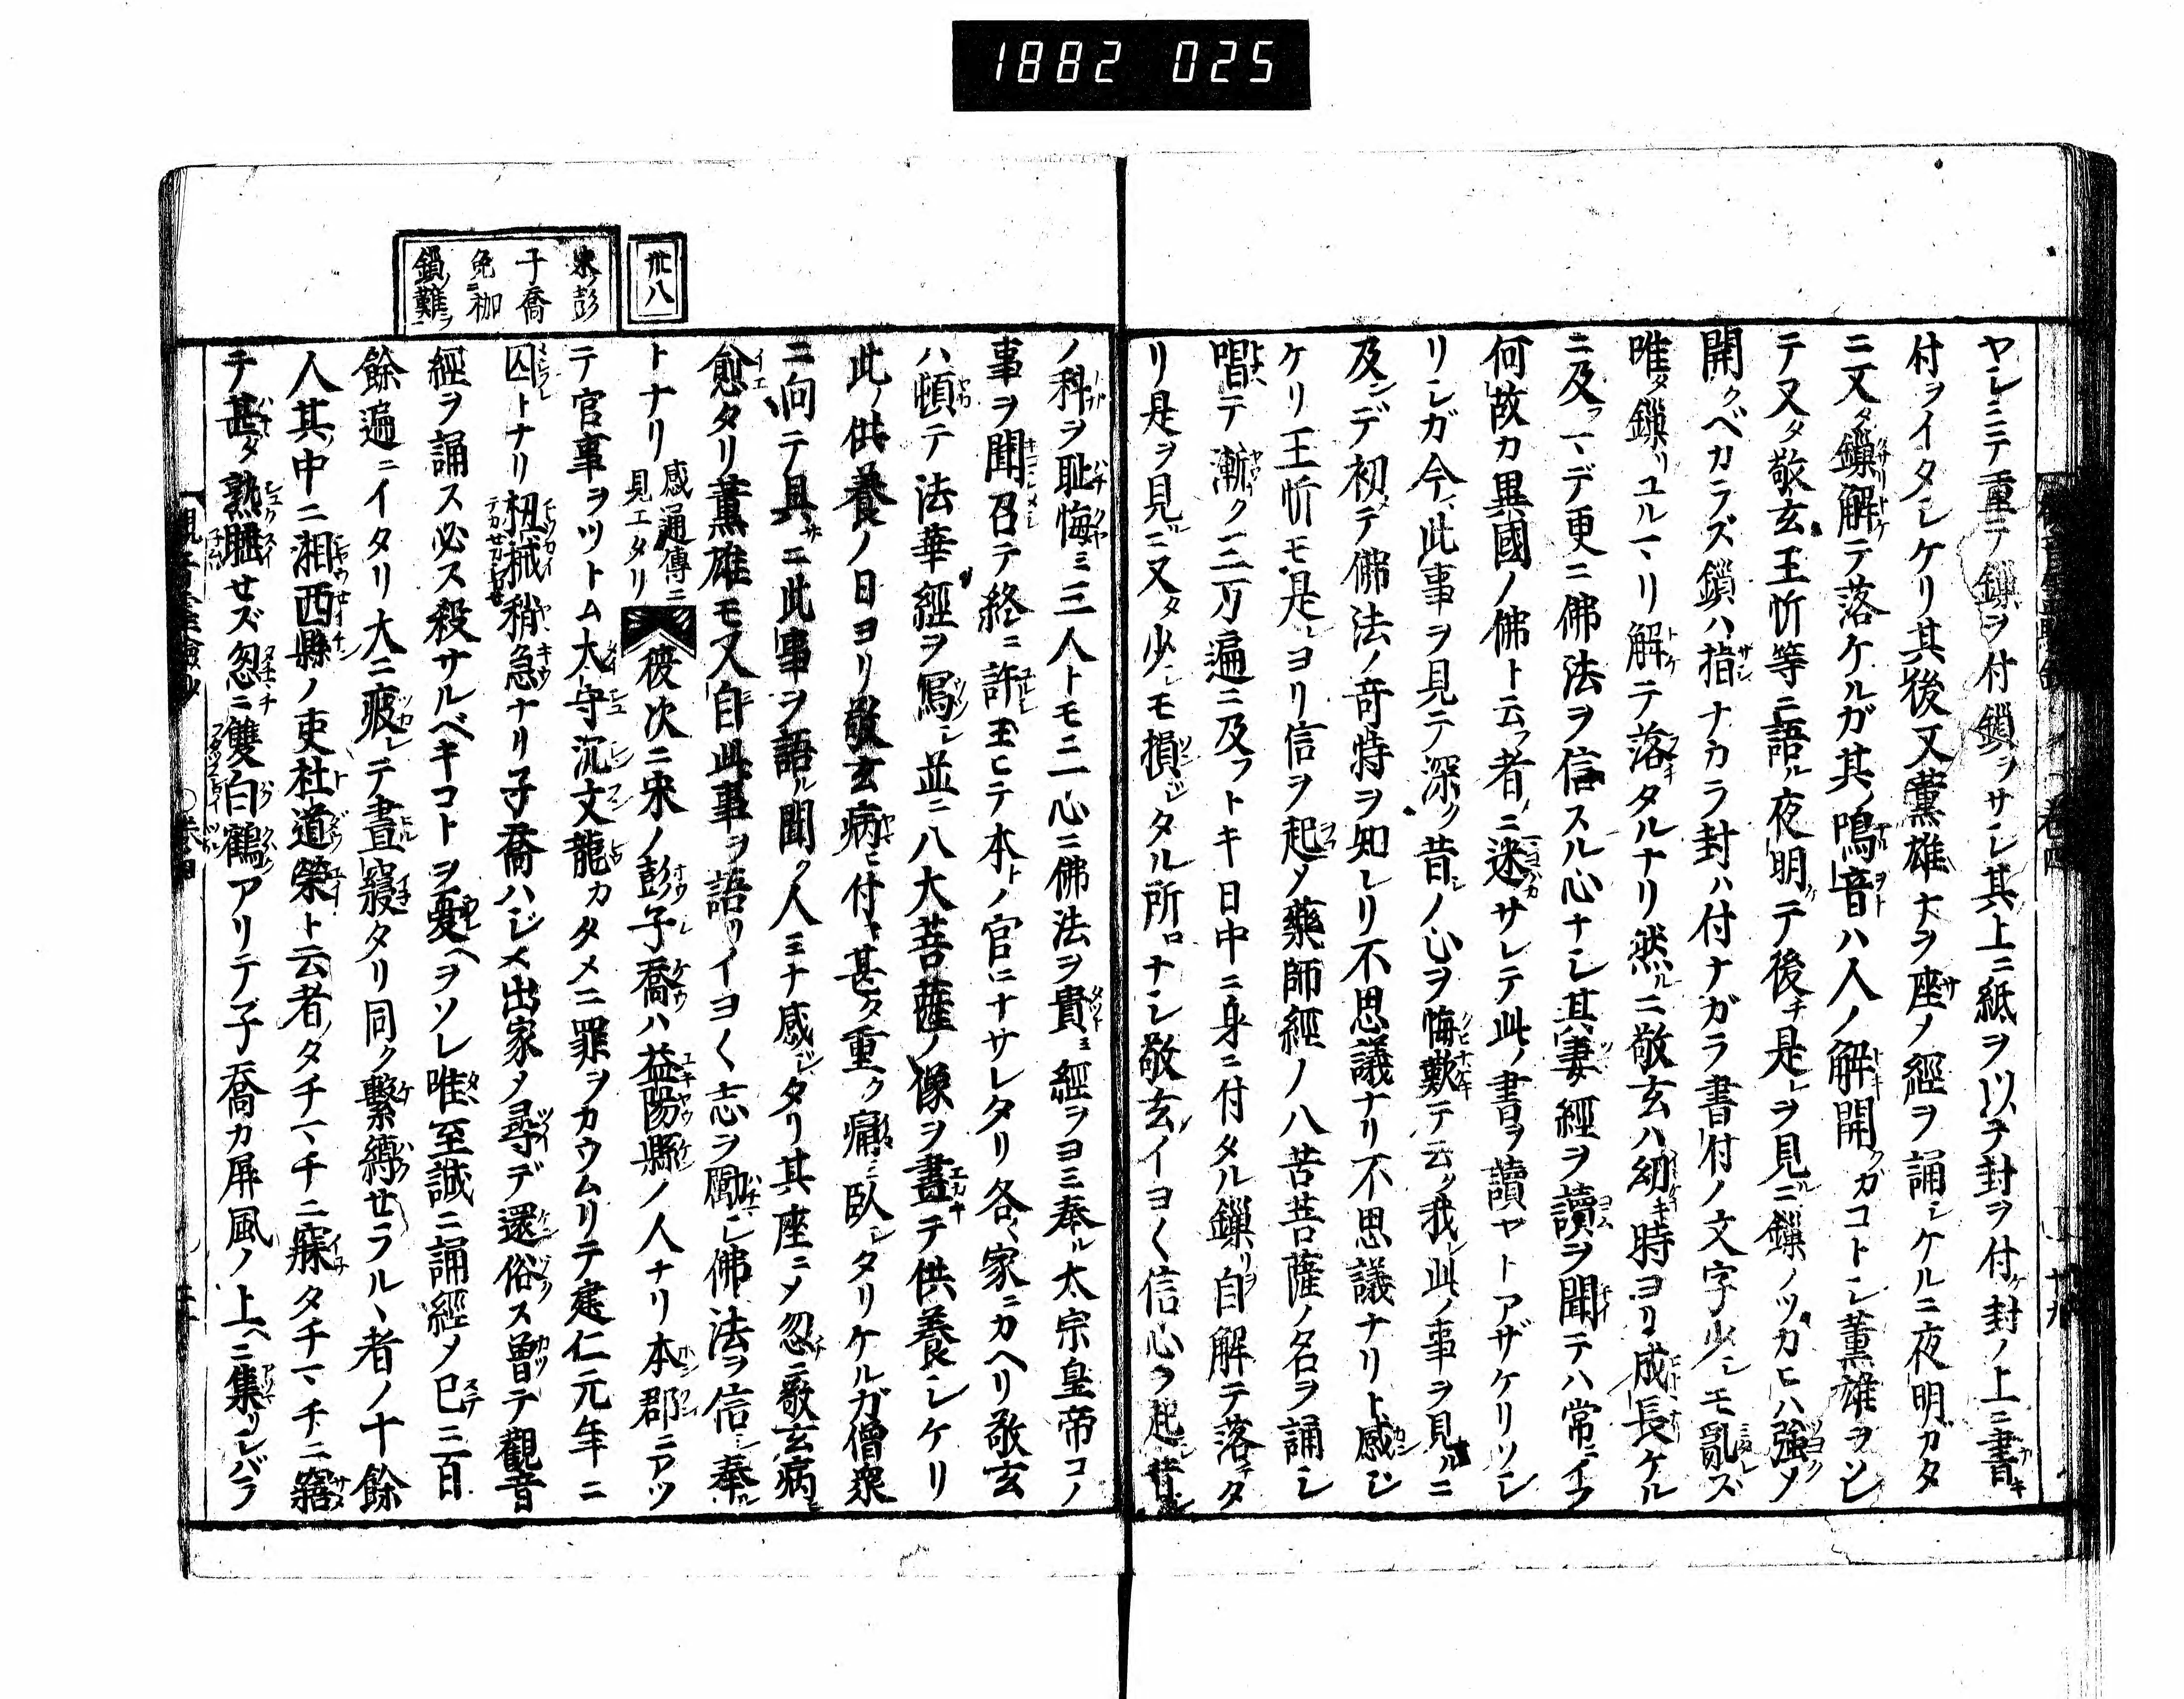 1882 025
ヤシミテ重テ鏁ヲ付鏁ヲサシ其上ニ紙ヲ以テ封ヲ付ケ封ノ上ニ書
付ヲイタシケリ其後又薫雄ナヲ座ノ經ヲ誦シケルニ夜明ガタ
ニ又タ鏁解テ落ケルガ其鳴音ハ人ノ解開クガコトシ薫雄ヲソレ
テ又タ敬玄王忻等ニ語ル夜明テ後チ是レヲ見ルニ鏁ノツカヒハ強ノ
開クベカラズ鎖ハ指ナカラ封ハ付ナガラ書付ノ文字少シモ亂ズ
唯タ鏁リユルマリ解テ落タルナリ然ルニ敬玄ハ幼キ時ヨリ成長ケル
ニ及フマデ更ニ佛法ヲ信スル心ナシ其妻經ヲ讀ヲ聞テハ常ニイフ
何故カ異國ノ佛ト云フ者ノニ迷サレテ此ノ書ヲ讀ヤトアザケリソシ
リシガ今此事ヲ見テ深ク昔ノ心ヲ悔歎テ云ク我レ此ノ事ヲ見ルニ
及ンデ初テ佛法ノ奇特ヲ知レリ不思議ナリ不思議ナリト感シ
ケリ王忻モ是ヨリ信ヲ起ノ藥師經ノ八苦菩薩ノ名ヲ誦シ
唱テ漸ク二三万遍ニ及フトキ日中ニ身ニ付タル鏁リ自ヲ解テ落チタ
リ是ヲ見ルニ又タ少シモ損シタル所ロナシ敬玄イヨ〱信心ヲ起シ昔シ
ノ科ヲ耻悔ミ三人トモニ一心ニ佛法ヲ貴ヨ經ヲヨミ奉ル太宗皇帝コノ
事ヲ聞召テ終ニ許玉ヒテ本トノ官ニナサレタリ各〱家ニカヘリ敬玄
ハ頓テ法華經ヲ寫シ並ニ八大菩薩ノ像ヲ畫テ供養シケリ
此ノ供養ノ日ヨリ敬玄病ニ付キ甚タ重ク痛ミ臥シタリケルガ僧衆
ニ向テ具サニ此事ヲ語ル聞ク人ミナ感シタリ其座ニメ忽ニ敬玄病ヒ
愈タリ薫雄モ又自此事ヲ語リイヨ〱志ヲ勵シ佛法ヲ信シ奉ル
トナリ感通傳ニ見エタリ彼次ニ宋ノ彭子喬ハ益陽縣ノ人ナリ本郡ニアツ
テ官事ヲツトム太守沉文龍カタメニ罪ヲカウムリテ建仁元年ニ
囚トナリ杻械稍急ナリ子喬ハシメ出家ノ尋デ還俗ス曽テ觀音
經ヲ誦ス必ス殺サルベキコトヲ憂ヘヲソレ唯至誠ニ誦經ノ已三百
餘遍ニイタリ大ニ疲レテ晝寢タリ同ク繫縛セラルヽ者ノ十餘
人其中ニ湘西縣ノ吏杜道榮ト云者ノタチマチニ寐タチマチニ寤
テ甚タ熟睡セズ忽ニ雙白鶴アリテ子喬カ屏風ノ上ヘニ集リシバラ
卅八
宋ノ彭
子喬
免ニ枷
鎖ノ難ヲ